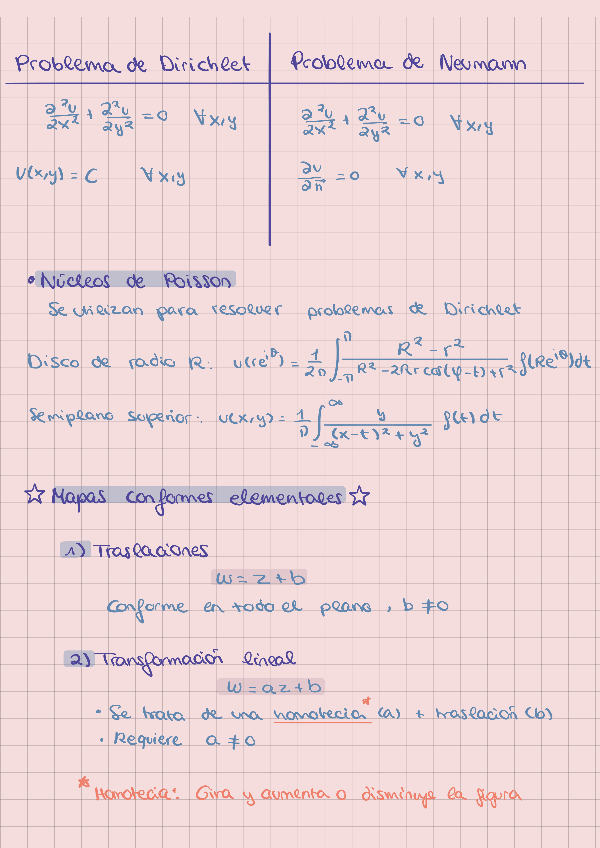 Problema de Dirichlet
∂²u/∂x² + ∂²u/∂y² = 0 ∀x,y
U(x,y) = C ∀x,y
Problema de Neumann
∂²u/∂x² + ∂²u/∂y² = 0 ∀x,y
∂u/∂n⃗ = 0 ∀x,y
• Núcleos de Poisson
Se utilizan para resolver problemas de Dirichlet
Disco de radio R: u(re^{iθ}) = 1/2π ∫_{-π}^{π} (R² - r²)/(R² - 2Rr cos(φ-t) + r²) f(Re^{iθ})dt
Semiplano superior: u(x,y) = 1/π ∫_{-∞}^{∞} y/((x-t)² + y²) f(t) dt
☆ Mapas conformes elementales ☆
1) Traslaciones
w = z + b
Conforme en todo el plano, b ≠ 0
2) Transformación lineal
w = az + b
• Se trata de una homotecia* (a) + traslación (b)
• Requiere a ≠ 0
* Homotecia: Gira y aumenta o disminuye la figura